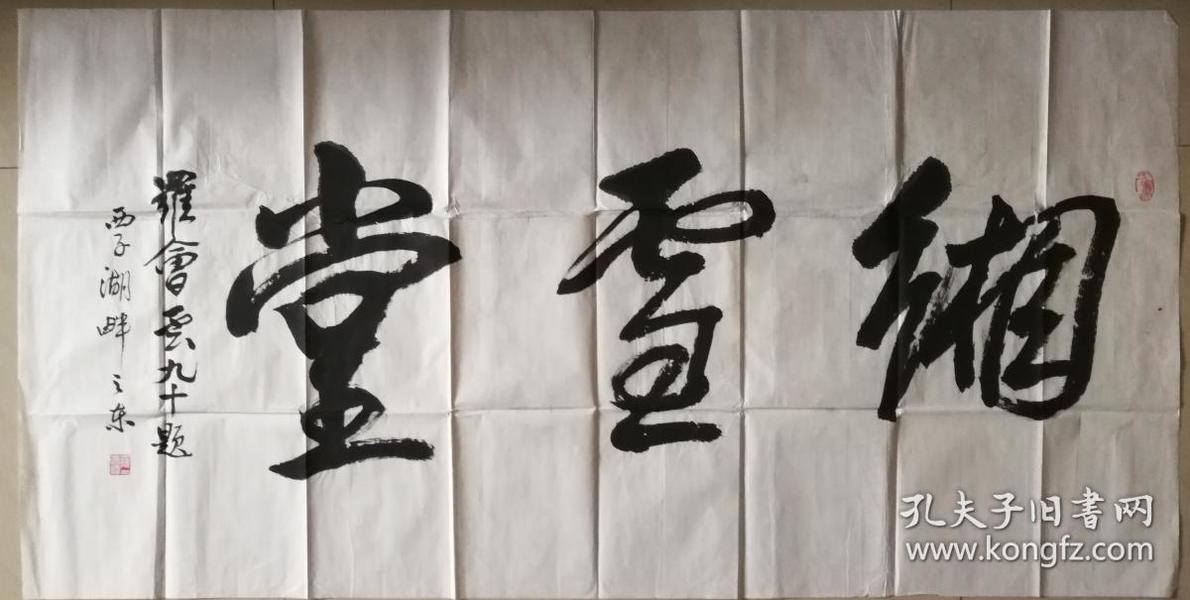 緗雪堂
羅會雲九十題
西子湖畔之東
孔夫子旧書网
www.kongfz.com